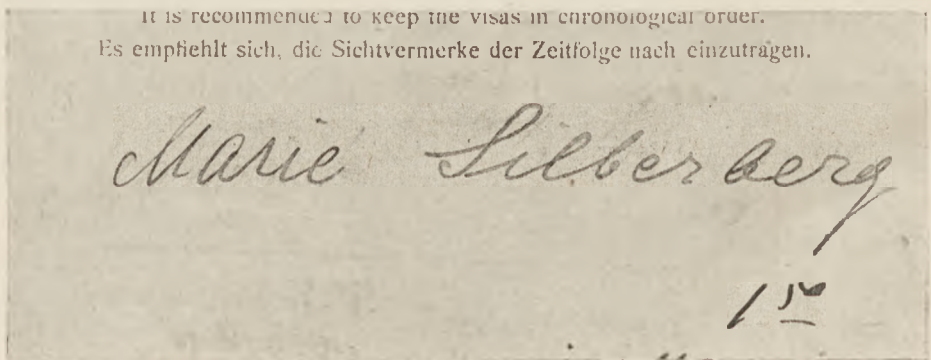 It is recommended to keep the visas in chronological order.
Es empfiehlt sich, die Sichtvermerke der Zeitfolge nach einzutragen.
Marie Silberberg
1 50